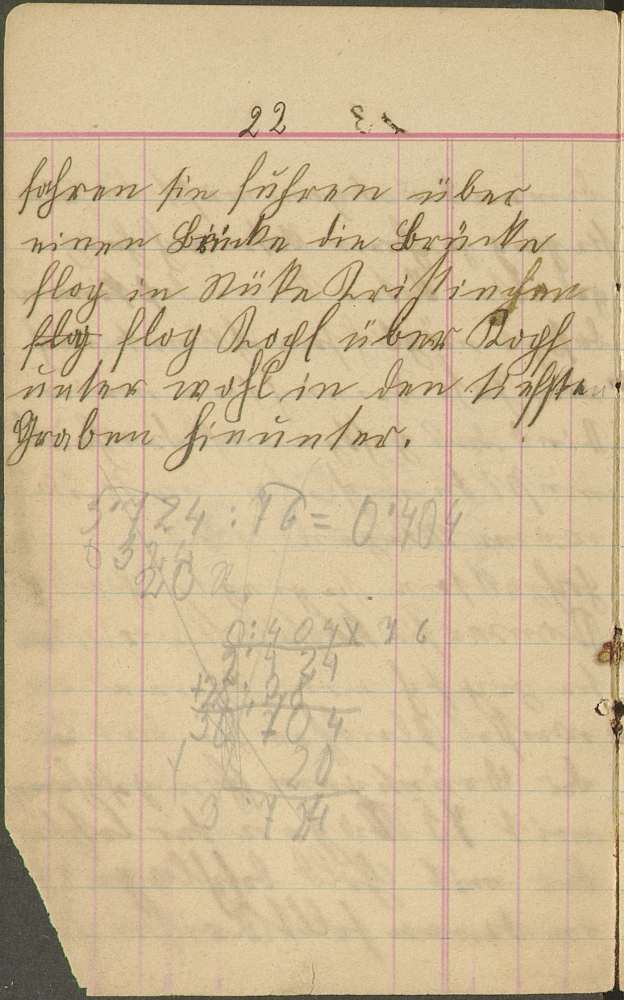 22
fahren sie fuhren über
einen Brücke die Brücke
flog in Stüke Kristinchen
flog flog Kopf über Kopf
unter wohl in den tiefsten
Graben hinunter.
: 76 = 0.404
20
0.404 x 76
2424
704
20